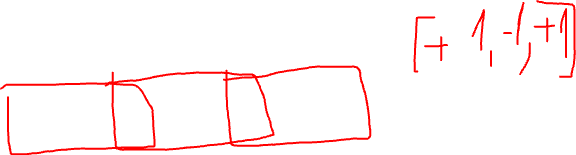 [+ 1, -1, +1]